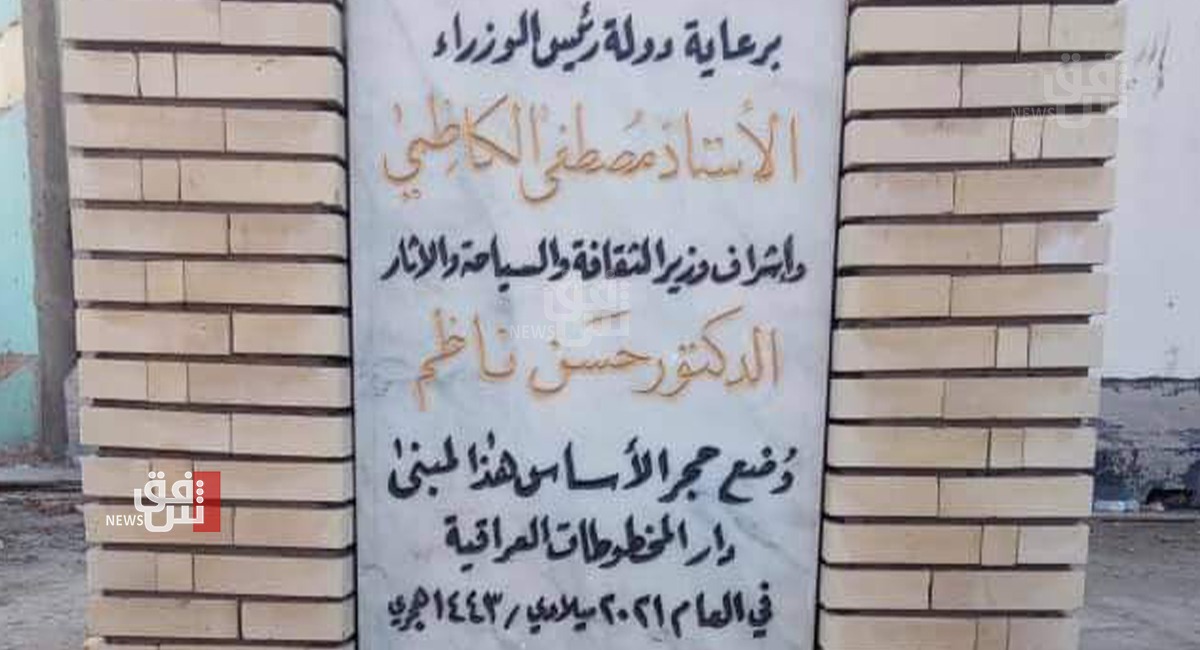 برعاية دولة رئيس الوزراء
الأستاذ مصطفى الكاظمي
وإشراف وزير الثقافة والسياحة والاثار
الدكتور حسن ناظم
وُضع حجر الأساس هذا المبنى
دار المخطوطات العراقية
في العام ٢٠٢١ ميلادي / ١٤٤٣ هجري
شفق
NEWS
شفق
NEWS
شفق
NEWS